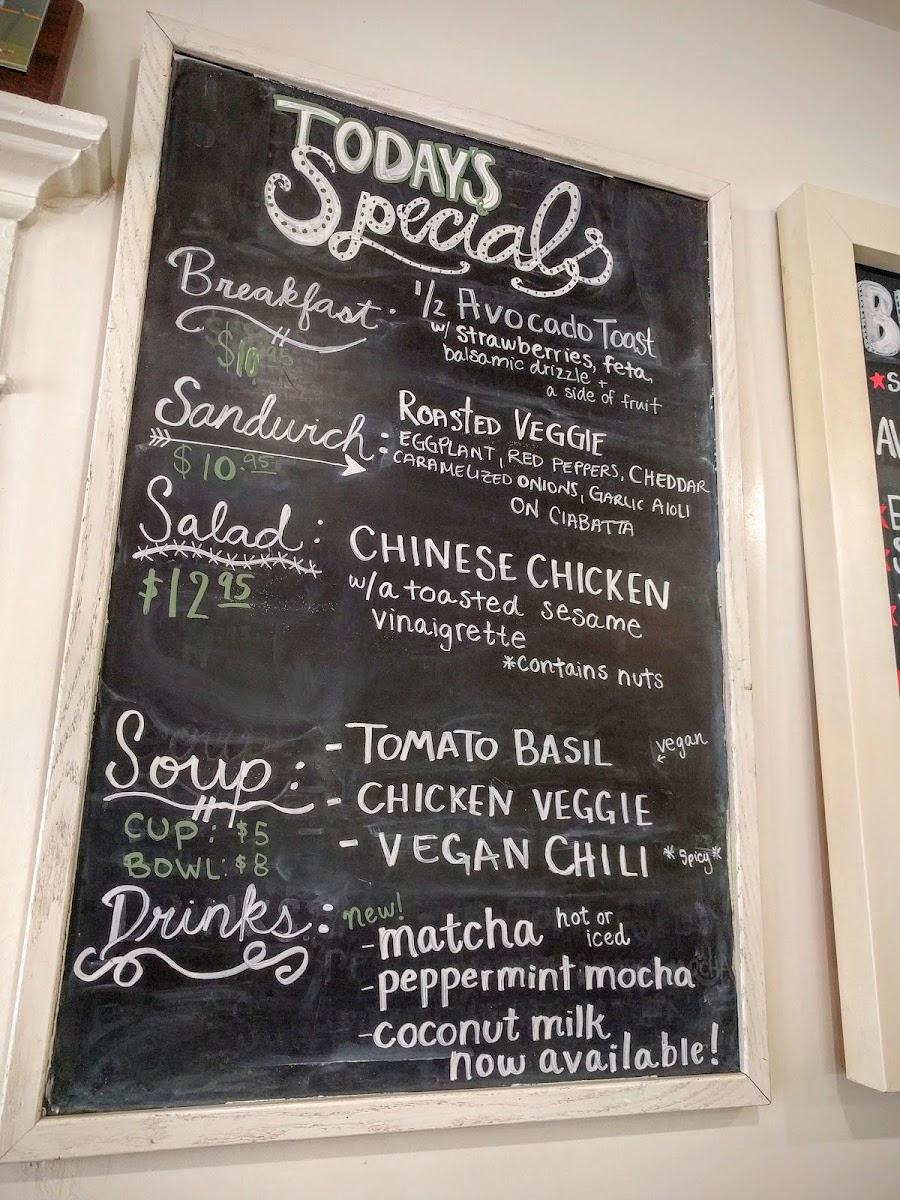 TODAY'S
Specials
Breakfast. 1/2 Avocado Toast
w/ strawberries, feta,
balsamic drizzle +
a side of fruit
$10.95
Sandwich: ROASTED VEGGIE
EGGPLANT, RED PEPPERS, CHEDDAR
CARAMELIZED ONIONS, GARLIC AIOLI
ON CIABATTA
$10.95
Salad: CHINESE CHICKEN
w/a toasted sesame
vinaigrette
*contains nuts
$12 95
Soup: - TOMATO BASIL vegan
- CHICKEN VEGGIE
- VEGAN CHILI *spicy*
CUP: $5
BOWL: $8
Drinks: new!
- matcha hot or
iced
- peppermint mocha
- coconut milk
now available!